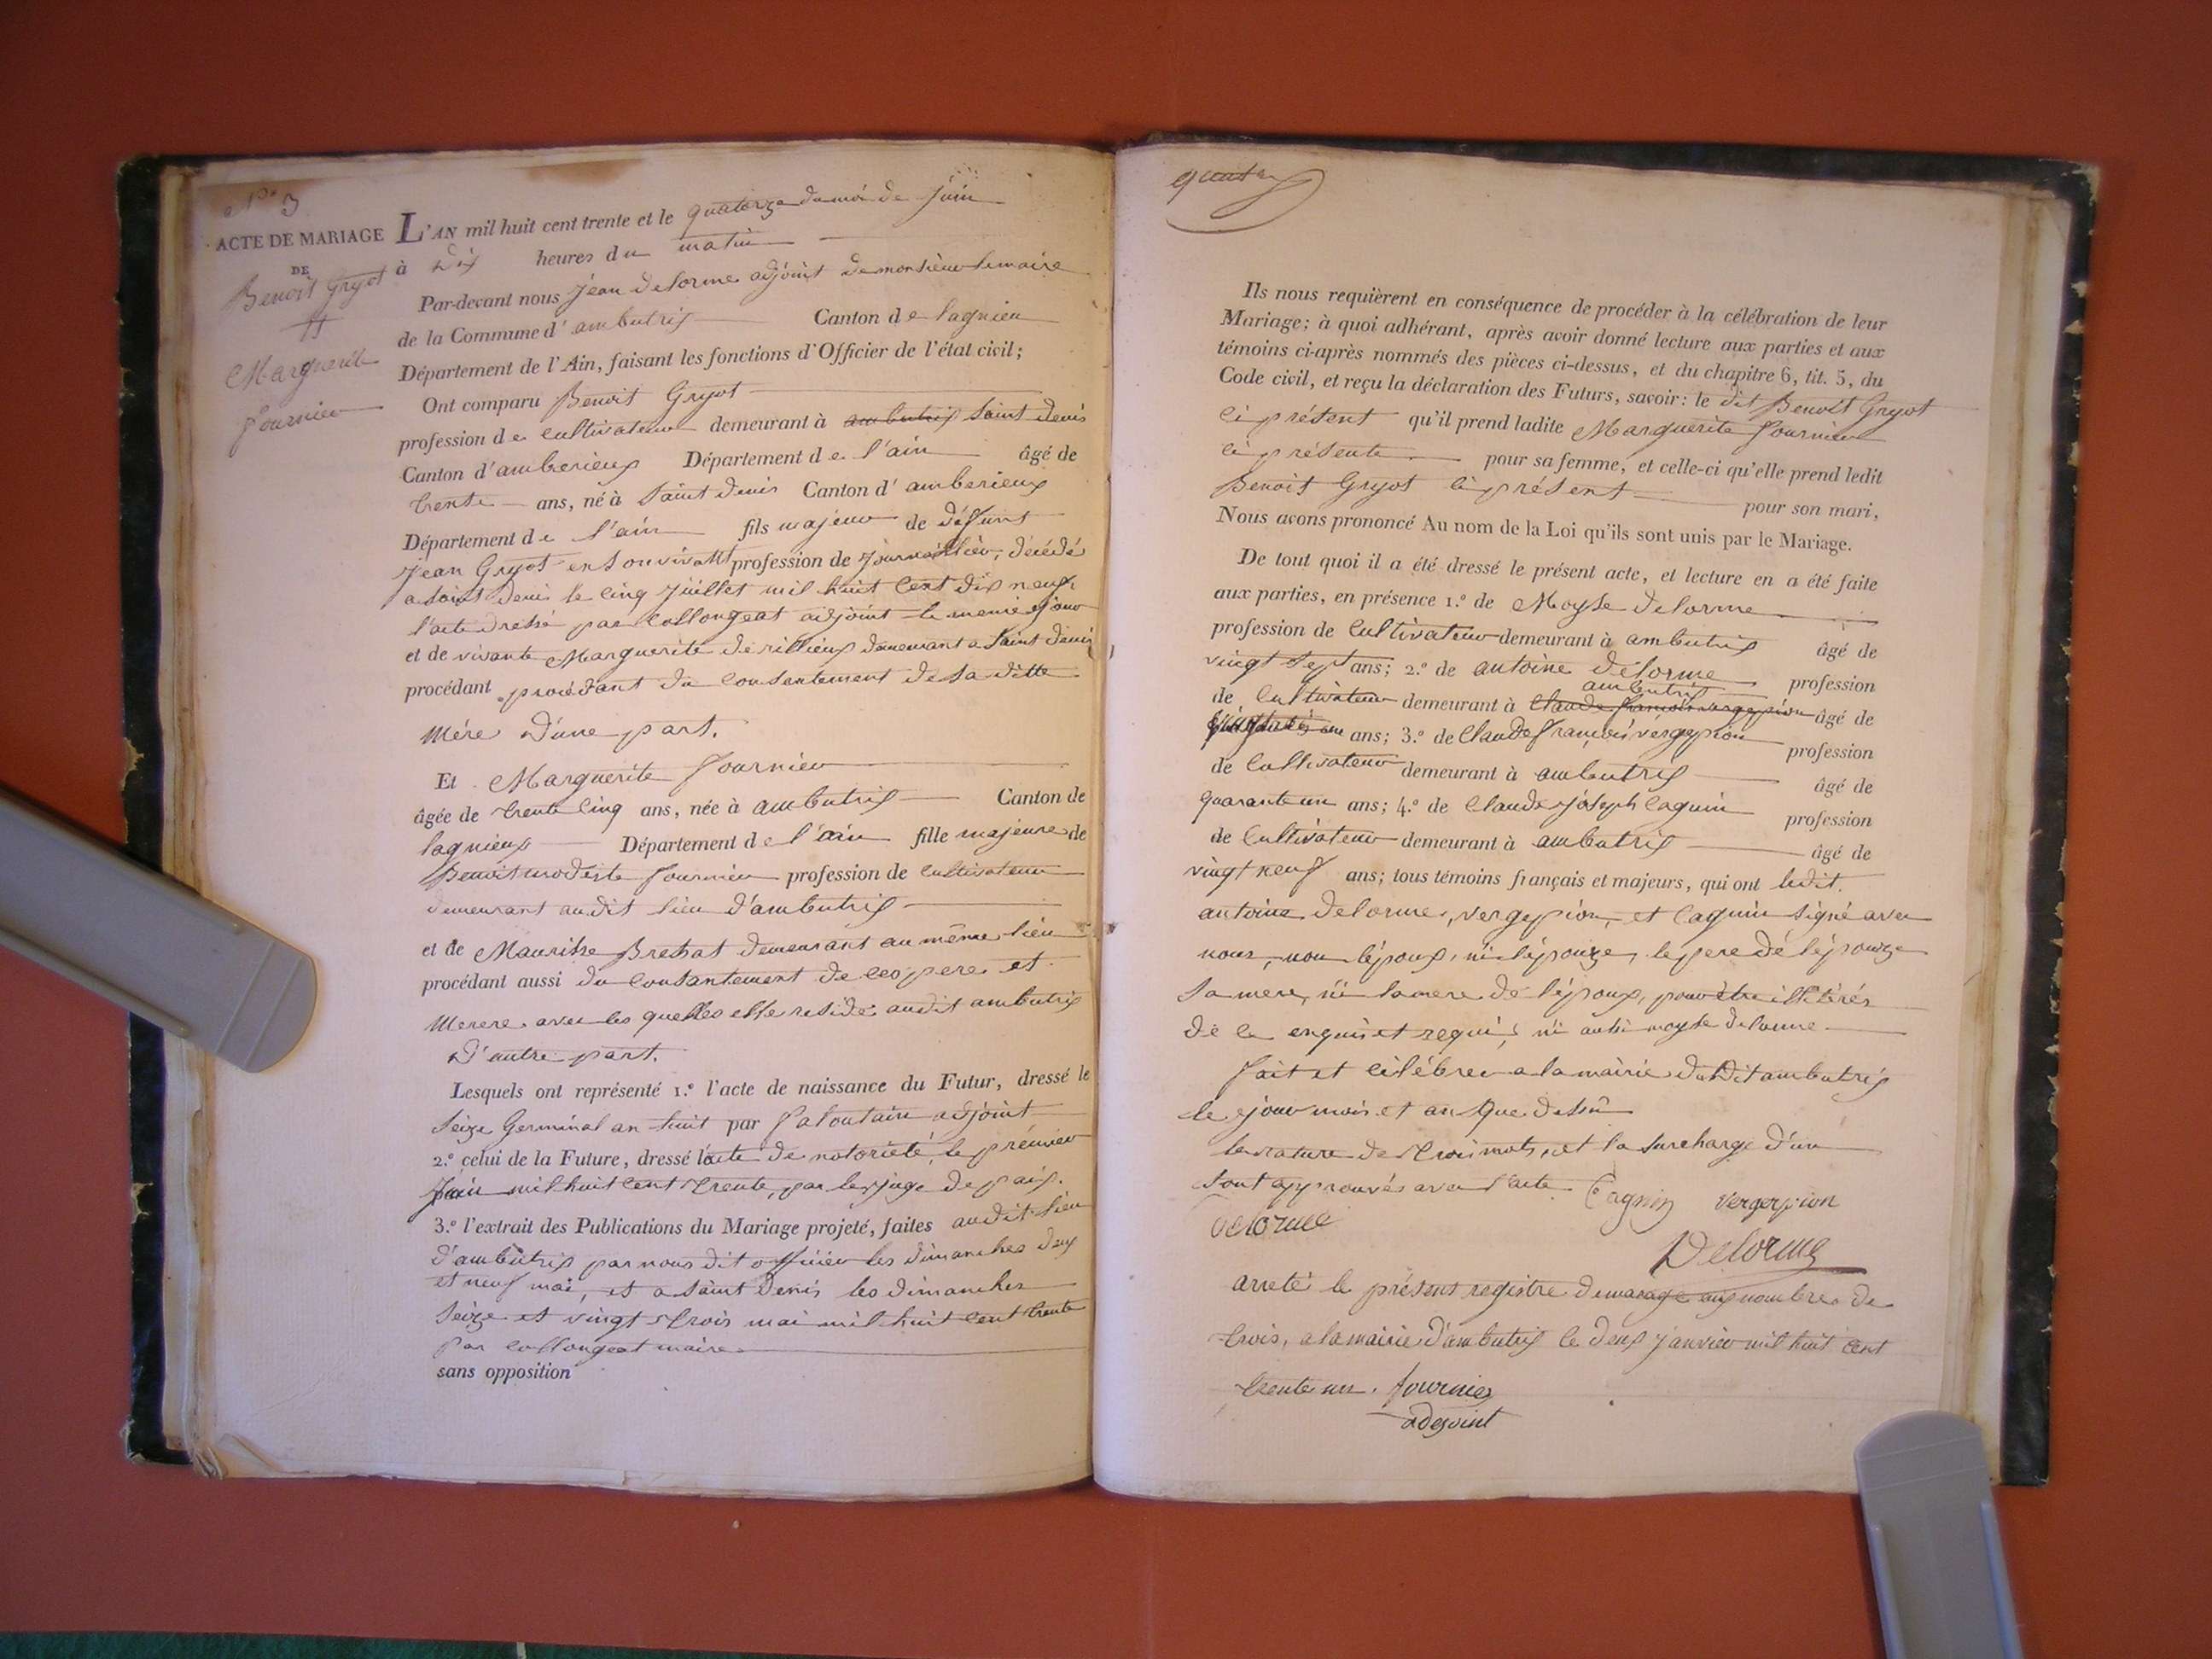 N.o 3
ACTE DE MARIAGE
DE
Benoit Gryot
et
Marguerite
fournier
L'AN mil huit cent trente et le quatorze du moi de juin
à Dix heures du matin
Par-devant nous Jéan Delorme adjoint de monsieur lemaire
de la Commune d'ambutrix Canton de lagnieu
Département de l'Ain, faisant les fonctions d'Officier de l'état civil;
Ont comparu Benoit Gryot
profession de cultivateur demeurant à ambutrix saint denis
Canton d'amberieux Département de l'ain âgé de
trente ans, né à saint denis Canton d'amberieux
Département de l'ain fils majeur de défunt
Jean Gryot en sonvivant profession de Journallier, décédé
a saint denis le cinq Juillet mil huit cent dix neuf
l'acte dressé par Collongeat adjoint le meme jour
et de vivante Marguerite de rillieux demeurant a saint denis
procédant procédant du consentement de sa ditte
mére D'une part.
Et Marguerite fournier
âgée de trente cinq ans, née à ambutrix Canton de
lagnieux Département de l'ain fille majeure de
Benoit modeste fournier profession de cultivateur
demeurant au dit lieu d'ambutrix
et de Maurisse Bressat demeurant au même lieu
procédant aussi du consantement de ceo pere et
merere avec les quelles elle reside audit ambutrix
D'autre part.
Lesquels ont représenté 1.o l'acte de naissance du Futur, dressé le
seize Germinal an huit par adjoint
2.o celui de la Future, dressé l'acte de notoriété, le prémier
Juin mil huit cent trente, par le juge de paix.
3.o l'extrait des Publications du Mariage projeté, faites audit lieu
d'ambutrix par nous dit officier les dimanches deux
et neuf mai, et a saint Denis les dimanches
seize et vingt trois mai mil huit cent trente
par collongeat maire
sans opposition
quatre
Ils nous requièrent en conséquence de procéder à la célébration de leur
Mariage; à quoi adhérant, après avoir donné lecture aux parties et aux
témoins ci-après nommés des pièces ci-dessus, et du chapitre 6, tit. 5, du
Code civil, et reçu la déclaration des Futurs, savoir: le dit Benoit Gryot
ci présent qu'il prend ladite Marguerite fournier
ci présente pour sa femme, et celle-ci qu'elle prend ledit
Benoit Gryot ci présent pour son mari,
Nous avons prononcé Au nom de la Loi qu'ils sont unis par le Mariage.
De tout quoi il a été dressé le présent acte, et lecture en a été faite
aux parties, en présence 1.o de Moyse delorme
profession de cultivateur demeurant à ambutrix âgé de
vingt sept ans; 2.o de antoine délorme profession
ambutrix
de cultivateur demeurant à claude françois vergepion âgé de
ans; 3.o de Claude françois vergepion profession
de Cultivateur demeurant à ambutrix âgé de
quarante un ans; 4.o de Claude joseph Cagnin profession
de Cultivateur demeurant à ambutrix âgé de
vingt neuf ans; tous témoins français et majeurs, qui ont ledit.
antoine delorme, vergepion, et Cagnin signé avec
nous, non lépoux, ni lépouze, le pere dé lépouze
sa mere, ni la mere de lépoux, pour être illitérés
de ce enquis et requi, ni aussi moyse delorme
fait et célébrer a la mairie dudit ambutrix
le jour mois et an que dessu
la rature de trois mots, et la surcharge d'un
sont approuvés avec l'acte. Cagnin vergerpion
delorme
Delorme
arreté le présent registre de mariage aux nombre de
trois, a la mairie d'ambutrix le deux janvier mil huit cent
trente un. fournier
adejoint